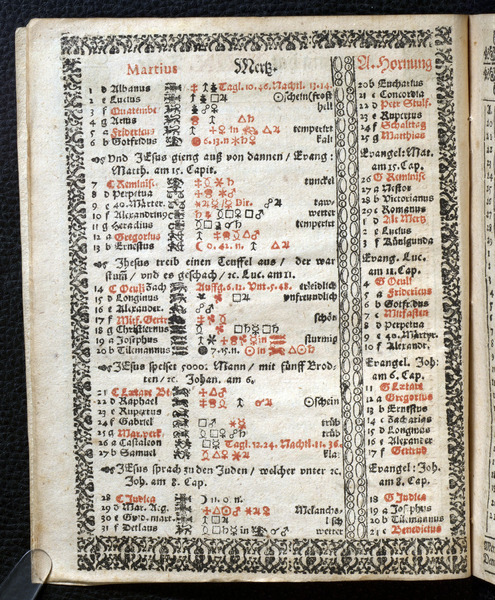 Martius Mertz. A. Hornung
1 d Albanus Tagl. 10. 46. Nachtl. 13. 14.
2 e Lucius schein(frost
3 f Quatembe hilt
4 g Arius
5 a Fridericus in temperirt
6 b Gotfridus 6. 13. n. kalt
Vnd JEsus gieng auß von dannen / Evang:
Matth. am 15. Capit.
7 C Reminisc. tunckel
8 d Perpetua
9 e 40. Märter. Dir. taw-
10 f Alexandrin9 wetter
11 g Heraclius temperirt
12 a Gregorius
13 b Ernestus 0. 42. n.
Jhesus treib einen Teuffel aus / der war
stum / vnd es geschach / ꝛc. Luc. am 11.
14 C Oculi Zach Auffg. 6. 12. Vnt. 5. 48. erleidlich
15 d Longinus vnfreundlich
16 e Alexander.
17 f Mitf. Gertr schön
18 g Christiernus
19 a Josephus in sturmig
20 b Tilemannus 7. 15. n. in
JEsus speiset 5000. Mann / mit fünff Brod-
ten / ꝛc. Johan. am 6.
21 C Lætare Be.
22 d Raphael schein
23 e Rupertus
24 f Gabriel trüb
25 g Mar. verk. trüb
26 a Castalion Tagl. 12. 24. Nachtl. 11. 36.
27 b Samuel kla:
JEsus sprach zu den Juden / welcher vnter ꝛc.
Joh. am 8. Cap.
28 C Judica 11. 0. n.
29 d Mar. Ag. Melancho-
30 e Gvid. mart. lisch
31 f Detlaus in wetter
20 b Eucharius
21 c Concordia
22 d Petr Stulf.
23 e Rupertus
24 f Schalttag
25 g Matthias
Evangel: Mat.
am 15. Cap.
26 G Reminisc.
27 a Nestor
28 b Victorianus
29 c Romanus
1 d Alt Mertz
2 e Lucius
3 f Künigunda
Evang. Luc.
am 11. Cap.
4 G Oculi
5 a Fridericus
6 b Gotfridus
7 c Mitfasten
8 d Perpetua
9 e 40. Martyr.
10 f Alexander.
Evangel. Joh:
am 6. Cap.
11 G Lætare
12 a Gregorius
13 b Ernestus
14 c Zacharias
15 d Longinus
16 e Alexander
17 f Gertrud
Evangel: Joh.
am 8. Cap.
18 G Judica
19 a Josephus
20 b Tilemannus
21 c Benedictus